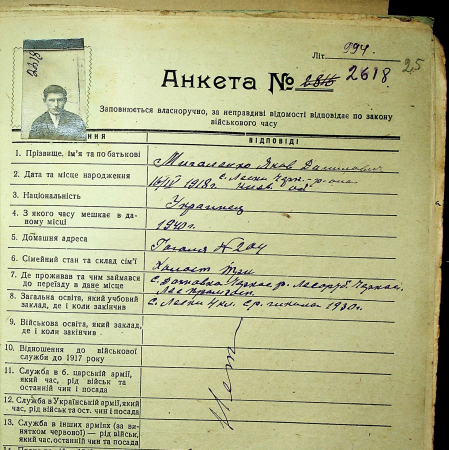 2618
Літ. 994.
Анкета № 2816 2618 25
Заповнюється власноручно, за неправдиві відомості відповідає по закону
військового часу
ННЯ ВІДПОВІДІ
1. Прізвище, ім'я та по батькові
Яков Данилович
2. Дата та місце народження
16/IV 1918г. с. Леськи
3. Національність
Украинец
4. З якого часу мешкає в да-
ному місці
1940 г.
5. Домашня адреса
Гоголя № 204
6. Сімейний стан та склад сім'ї
Холост
7. Де проживав та чим займався
до переїзду в дане місце
8. Загальна освіта, який учбовий
заклад, де і коли закінчив
с. Леськи ср. школа 1930г.
9. Військова освіта, який заклад,
де і коли закінчив
10. Відношення до військової
служби до 1917 року
11. Служба в б. царській армії,
який час, рід військ та
останній чин і посада
12. Служба в Українській армії, який
час, рід військ та ост. чин і посада
13. Служба в інших арміях (за ви-
нятком червоної) — рід військ,
який час, останній чин та посада
Нет